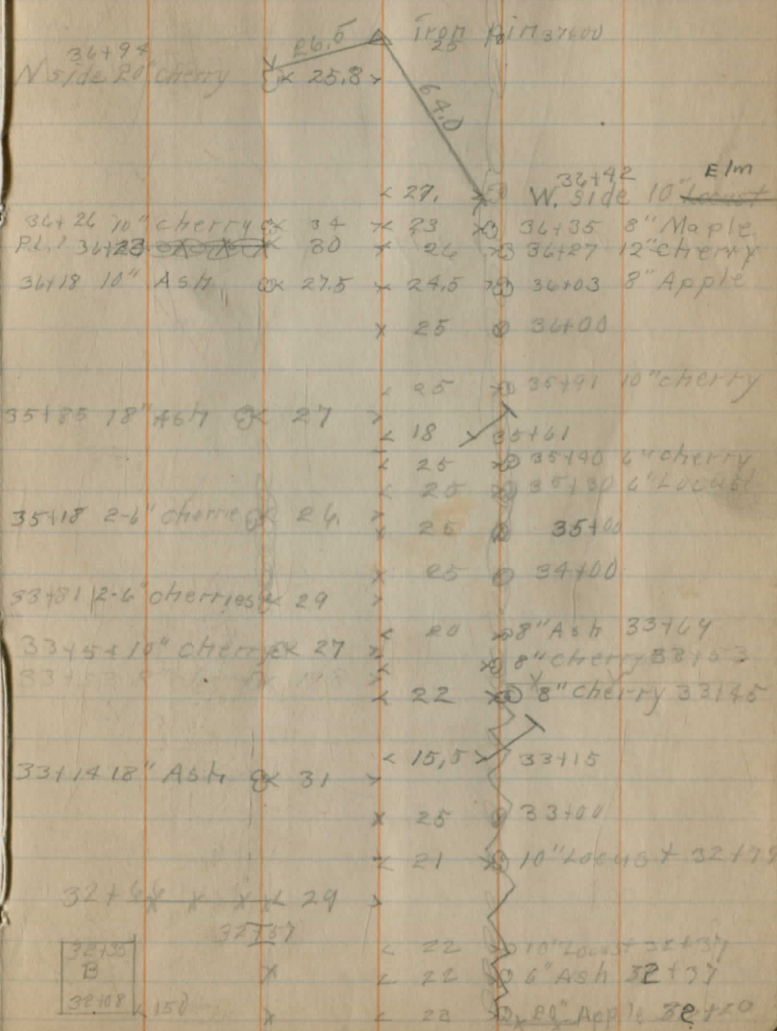 36+94 26.5 Iron Pin 37+00
25
N side 20" cherry 25.8
64.0
36+42 Elm
27. W. side 10" Locust
36+26 10" cherry 34 23 36+35 8" Maple
P.L.? 36+23 30 26 36+27 12" cherry
36+18 10" Ash 27.5 24.5 36+03 8" Apple
25 36+00
25 35+91 10" cherry
35+85 18" Ash 27
18 35+61
25 35+40 6" cherry
25 35+30 6" Locust
35+18 2-6" cherries 26
25 35+00
25 34+00
33+81 2-6" cherries 29
20 8" Ash 33+64
33+54 10" cherry 27
8" cherry 33+53
22 8" cherry 33+45
15.5 33+15
33+14 18" Ash 31
25 33+00
21 10" Locust 32+79
32+66 29
32+57
32+35 22 10" Locust 32+37
B 22 6" Ash 32+37
32+08 150 23 20" Apple 32+20